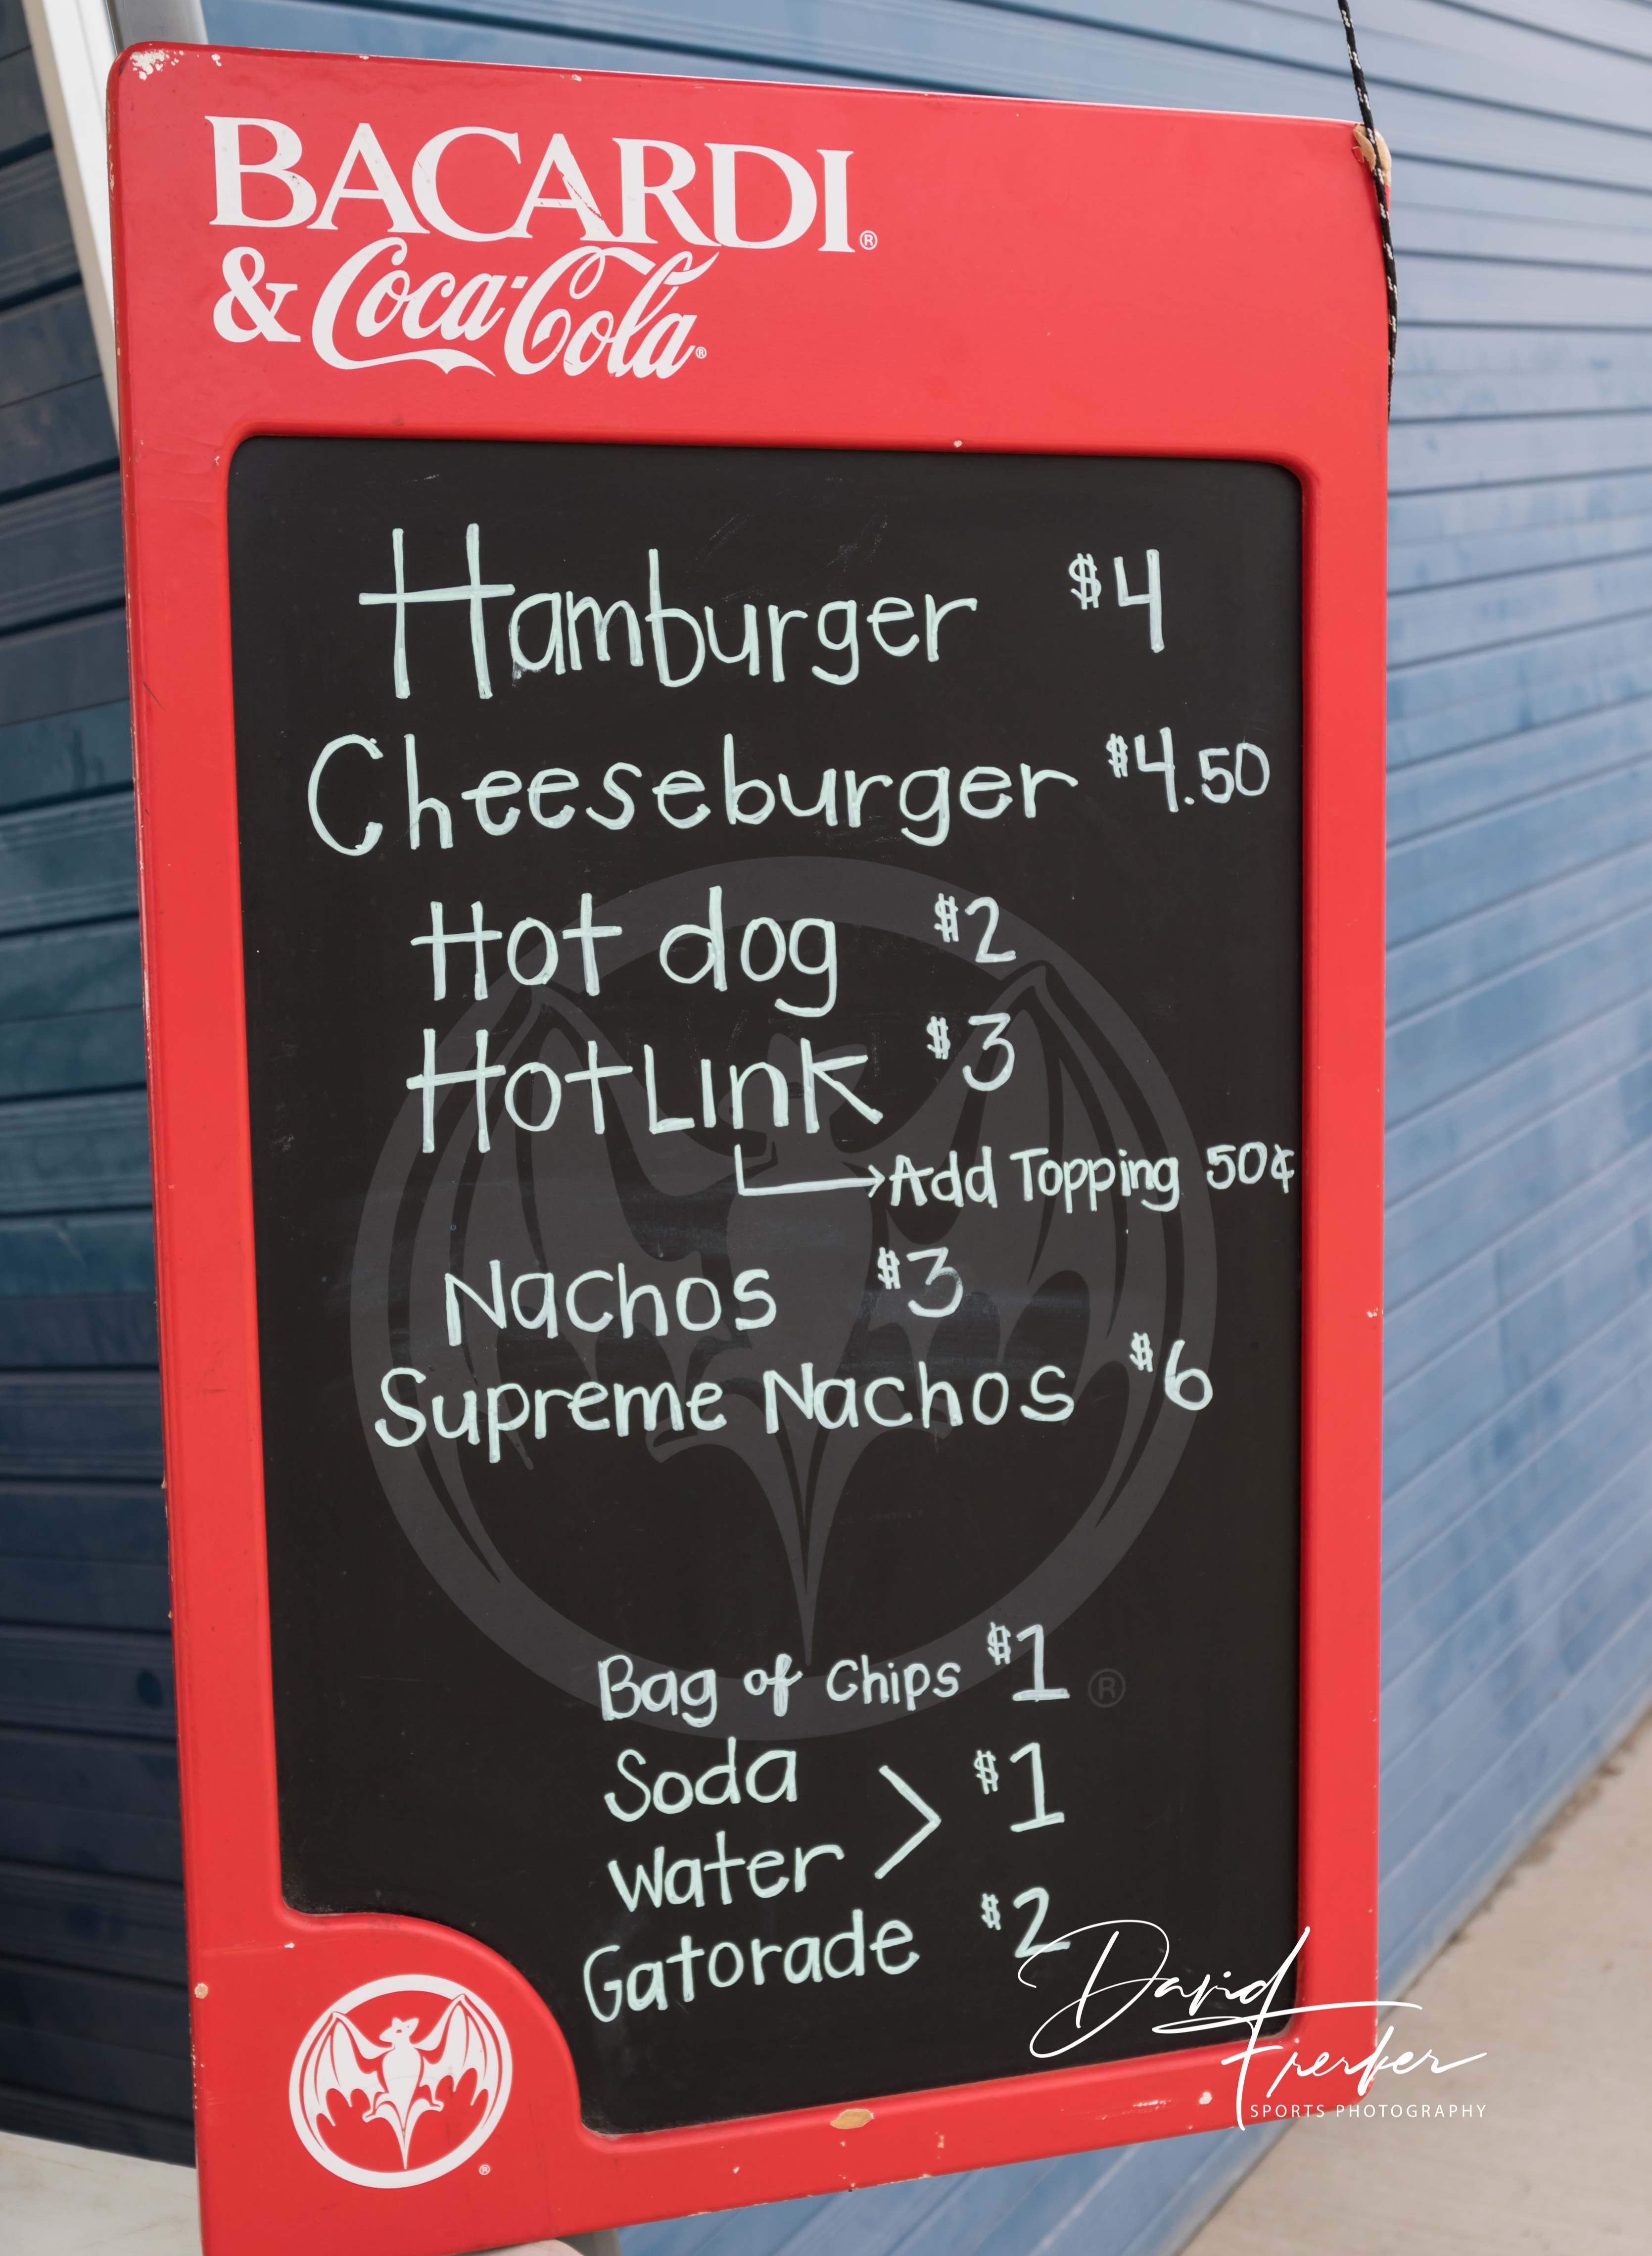 BACARDI®
& Coca-Cola®
Hamburger $4
Cheeseburger $4.50
Hot dog $2
HotLink $3
→Add Topping 50¢
Nachos $3
Supreme Nachos $6
Bag of Chips $1
®
Soda
Water > $1
Gatorade $2
®
David
Frerker
SPORTS PHOTOGRAPHY